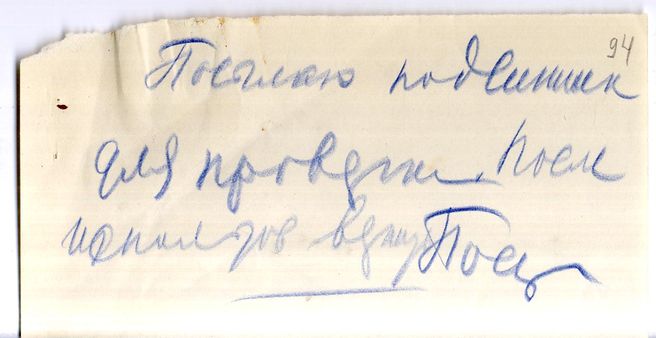 94
Посылаю подлинник
для проверки. Посл
использов верну Поск